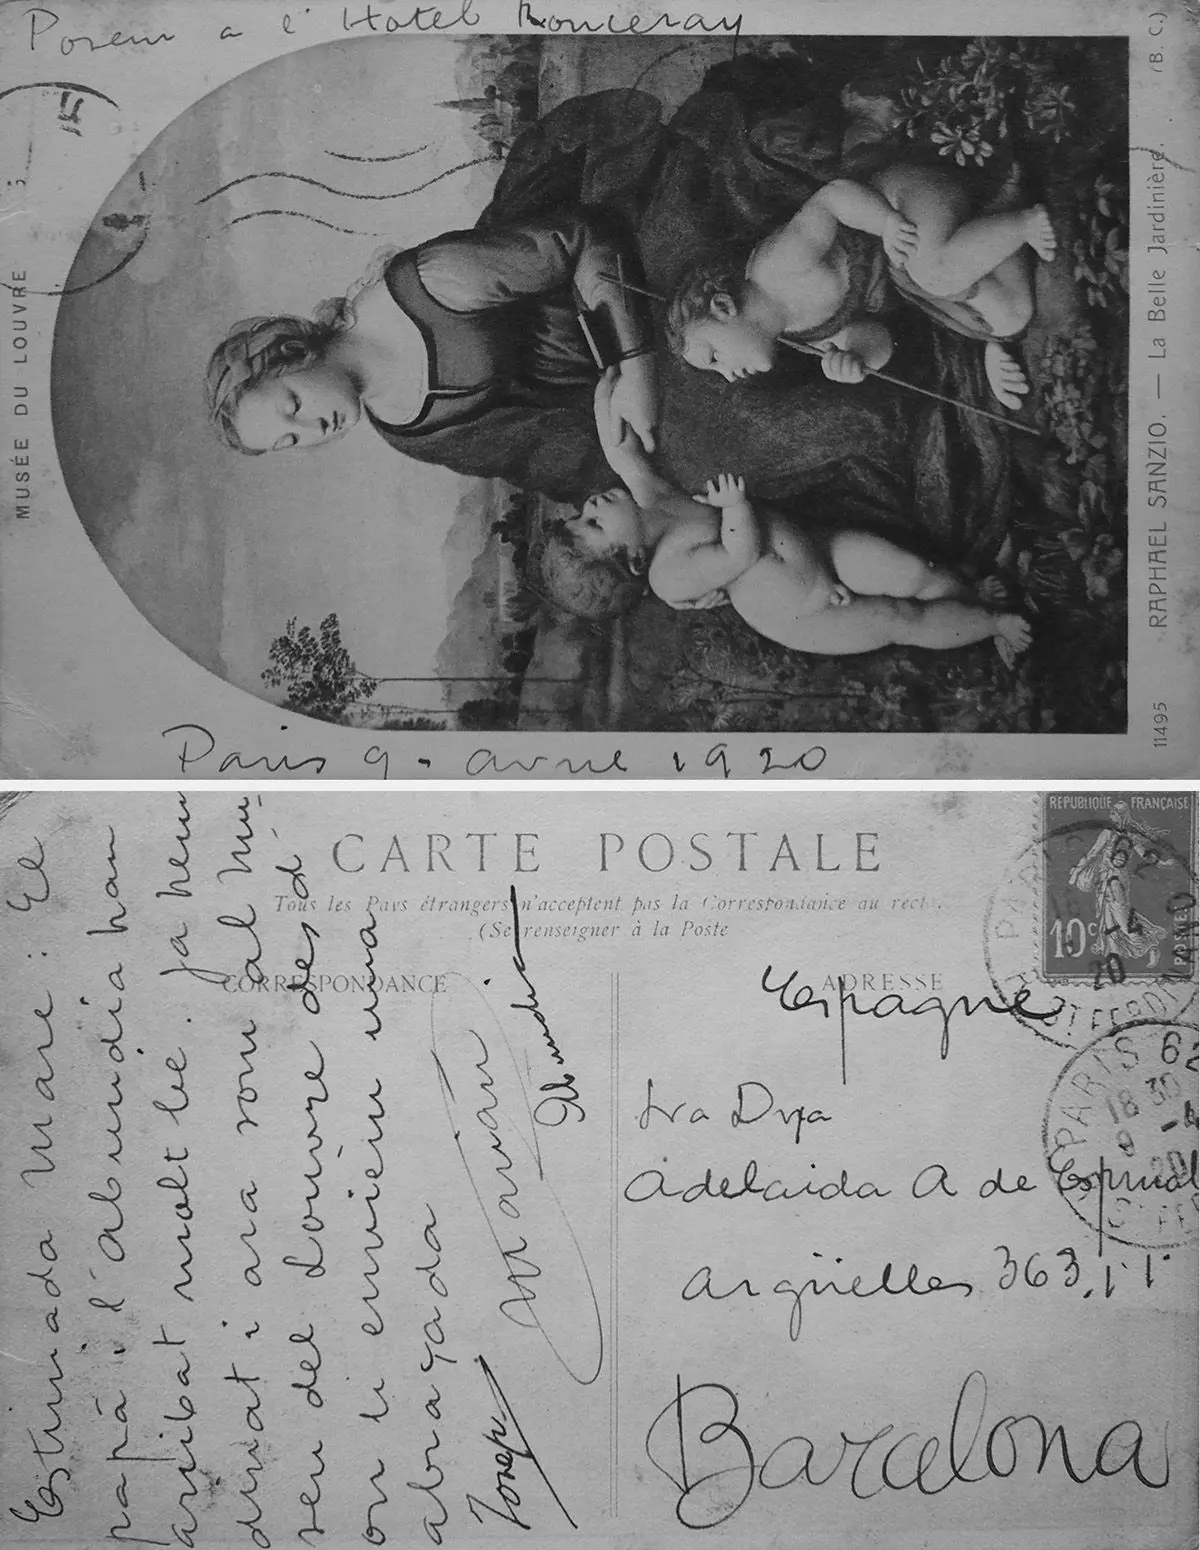 Posem a l'Hotel Ronceray
MUSÉE DU LOUVRE
15
RAPHAEL SANZIO. — La Belle Jardinière. (B. C.)
11495
Paris 9. avril 1920
CARTE POSTALE
Tous les Pays étrangers n'acceptent pas la Correspondance au recto.
(Se renseigner à la Poste
CORRESPONDANCE
ADRESSE
Estimada Mare: El
papà i l'abundia han
arribat molt bé. Ja hem
dinat i ara som al mu-
seu del Louvre des d'
on li enviem una
abraçada
Josep
Marian
Abundi
REPUBLIQUE FRANÇAISE
10c
POSTES
PARIS 62
18 30
9 -4
20
Espagne
Sra Dya
Adelaida A de Espinal
Argüelles 363, 1º 1ª
Barcelona